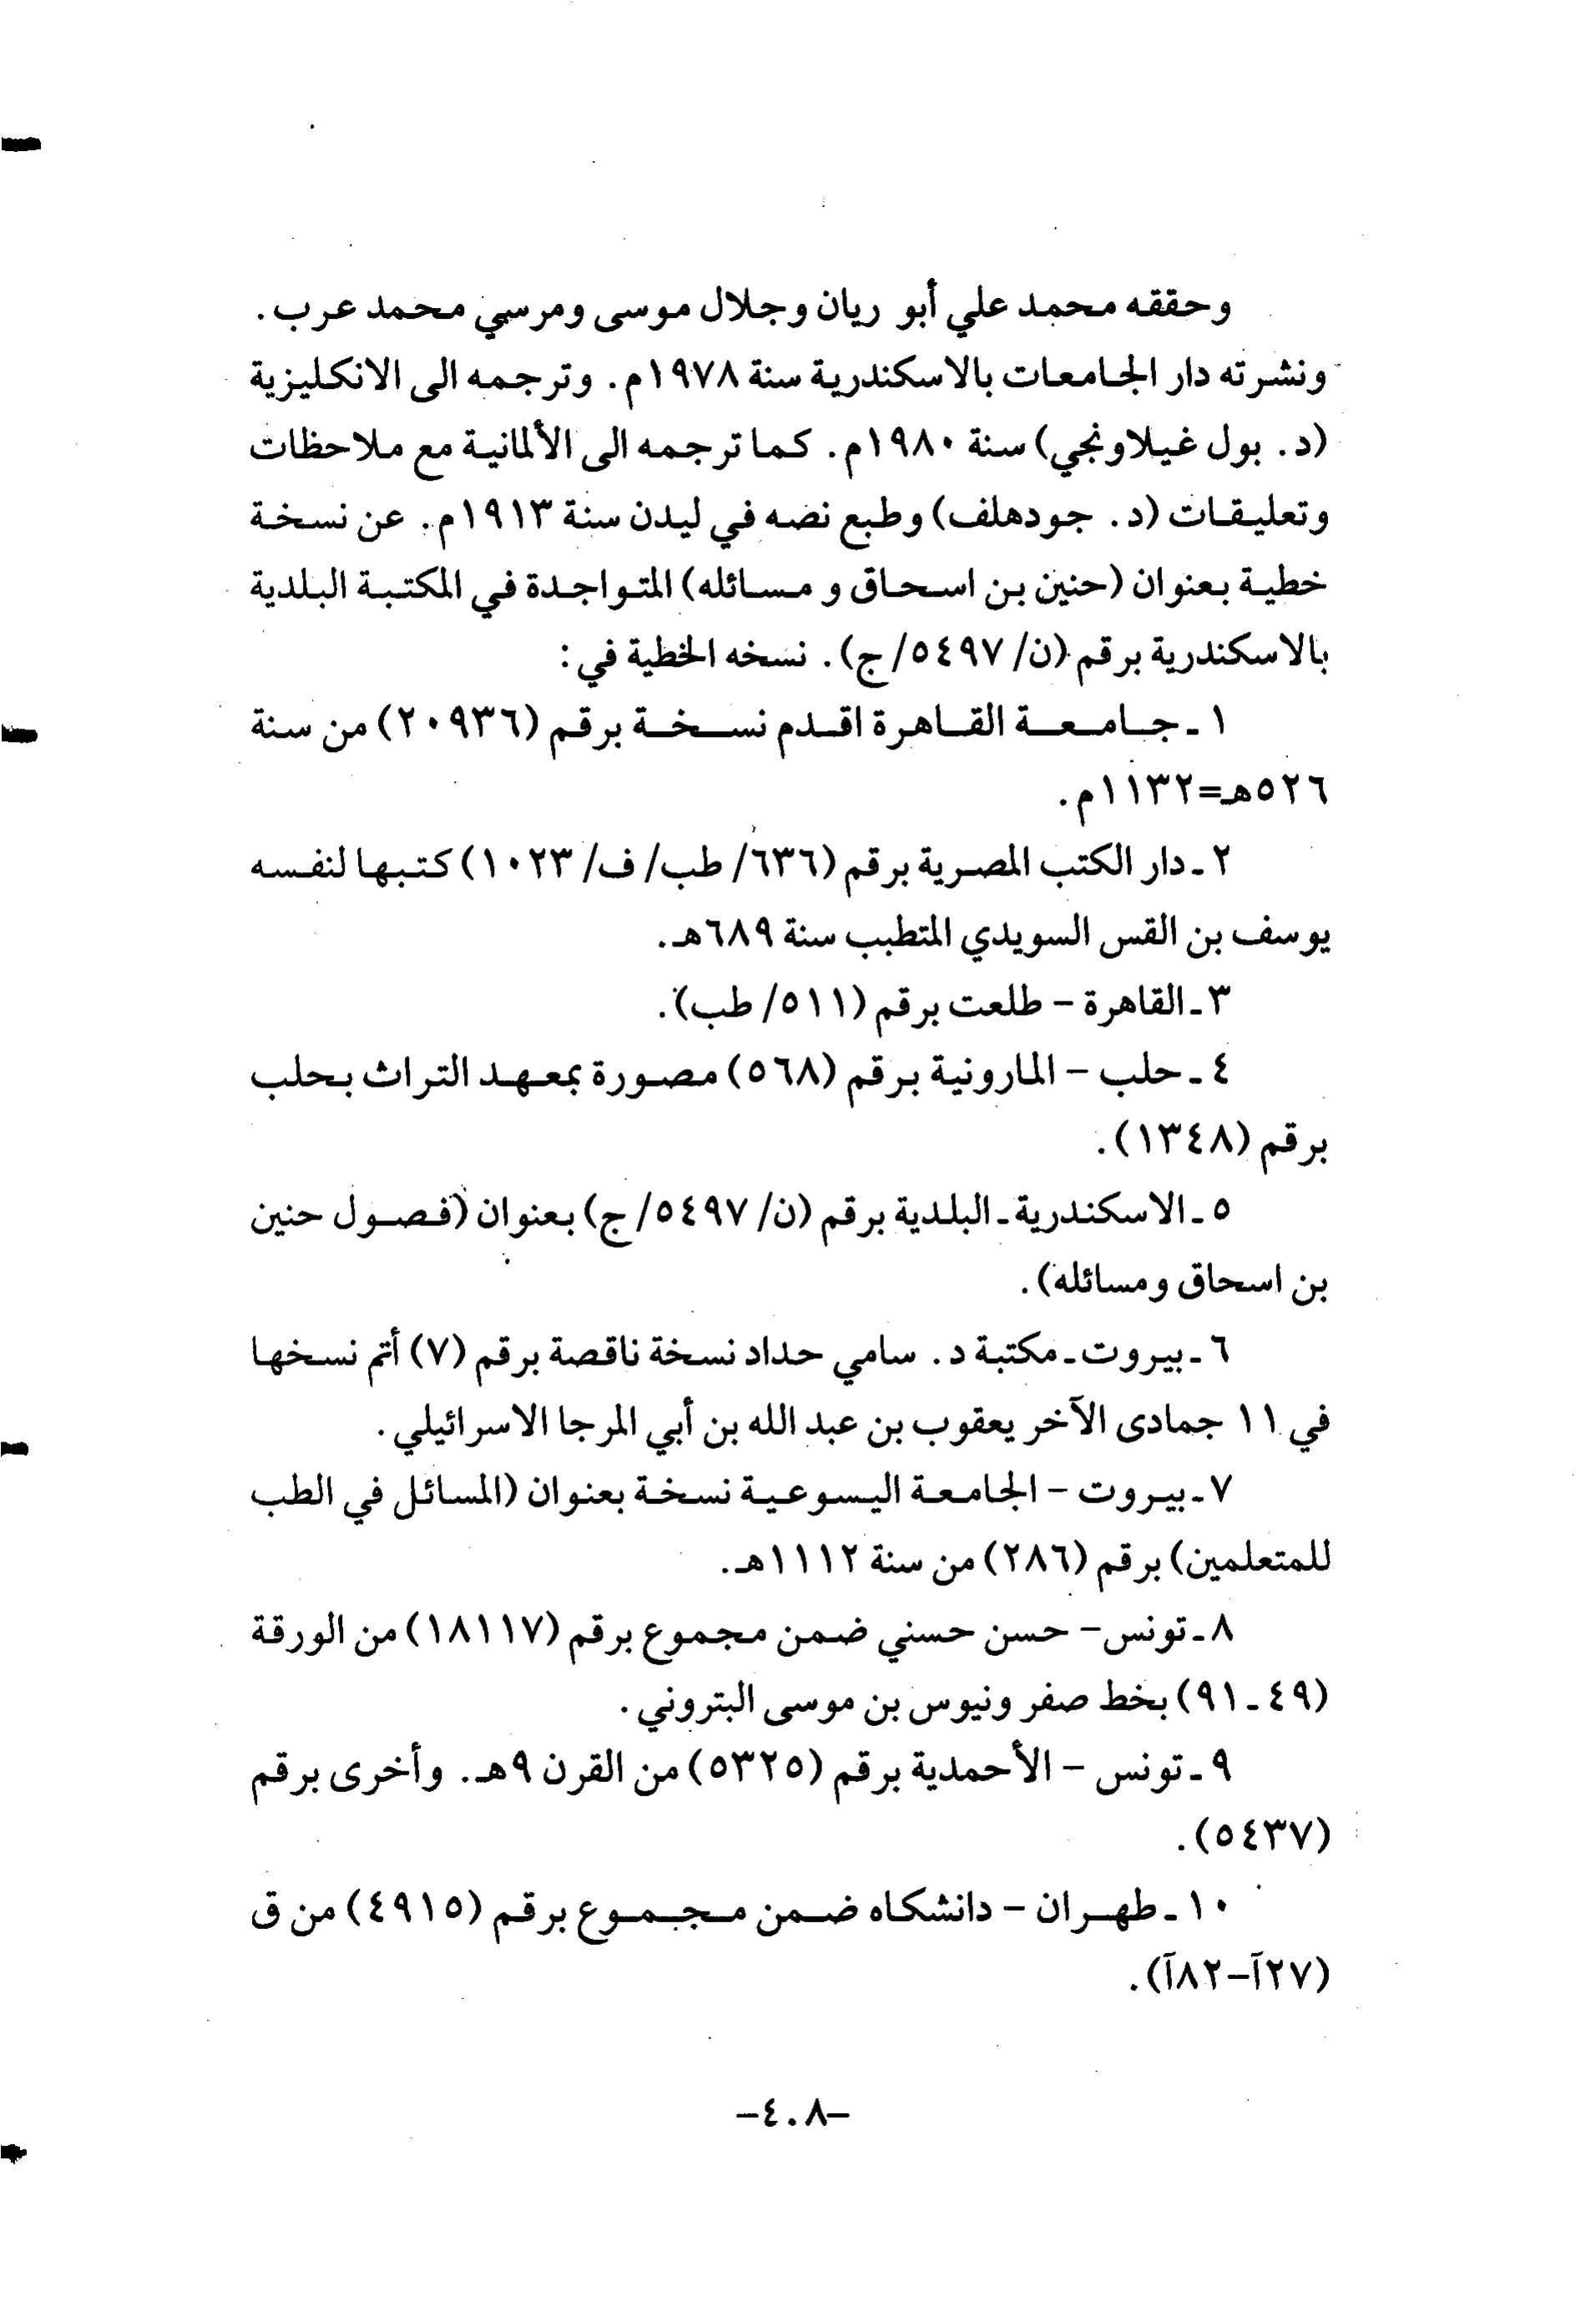 وحققه محمد علي أبو ريان وجلال موسى ومرسي محمد عرب.
ونشرته دار الجامعات بالاسكندرية سنة ١٩٧٨م. وترجمه الى الانكليزية
(د. بول غيلاونجي) سنة ١٩٨٠م. كما ترجمه الى الألمانية مع ملاحظات
وتعليقات (د. جودهلف) وطبع نصه في ليدن سنة ١٩١٣م. عن نسخة
خطية بعنوان (حنين بن اسحاق و مسائله) المتواجدة في المكتبة البلدية
بالاسكندرية برقم (ن/ ٥٤٩٧/ ج). نسخه الخطية في:
١ ـ جامعة القاهرة اقدم نسخة برقم (٢٠٩٣٦) من سنة
٥٢٦هـ=١١٣٢م.
٢ ـ دار الكتب المصرية برقم (٦٣٦/ طب/ ف/ ١٠٢٣) كتبها لنفسه
يوسف بن القس السويدي المتطبب سنة ٦٨٩هـ.
٣ ـ القاهرة - طلعت برقم (٥١١/ طب).
٤ ـ حلب - المارونية برقم (٥٦٨) مصورة بمعهد التراث بحلب
برقم (١٣٤٨).
٥ ـ الاسكندرية ـ البلدية برقم (ن/ ٥٤٩٧/ ج) بعنوان (فصول حنين
بن اسحاق ومسائله).
٦ ـ بيروت ـ مكتبة د. سامي حداد نسخة ناقصة برقم (٧) أتم نسخها
في ١١ جمادى الآخر يعقوب بن عبد الله بن أبي المرجا الاسرائيلي.
٧ ـ بيروت - الجامعة اليسوعية نسخة بعنوان (المسائل في الطب
للمتعلمين) برقم (٢٨٦) من سنة ١١١٢هـ.
٨ ـ تونس - حسن حسني ضمن مجموع برقم (١٨١١٧) من الورقة
(٤٩ ـ ٩١) بخط صفر ونيوس بن موسى البتروني.
٩ ـ تونس - الأحمدية برقم (٥٣٢٥) من القرن ٩هـ. وأخرى برقم
(٥٤٣٧).
١٠ ـ طهران - دانشكاه ضمن مجموع برقم (٤٩١٥) من ق
(٢٧آ-٨٢آ).
-٤٠٨-